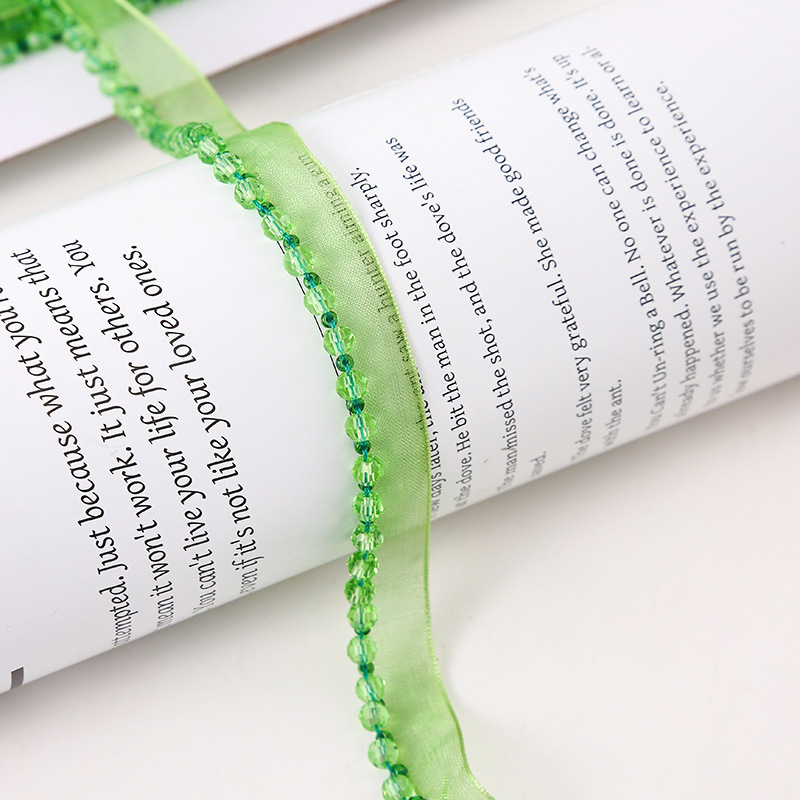 Just because what you
attempted. Just because what you're
mean it won't work. It just means that
You can't live your life for others. You
even if it's not like your loved ones.
saw a hunter aiming a gun
few days later, the ant
at the dove. He bit the man in the foot sharply,
The man/missed the shot, and the dove's life was
saved.
The dove felt very grateful. She made good friends
with the ant.
You Can't Un-ring a Bell. No one can change what's
already happened. Whatever is done is done. It's up
to us whether we use the experience to learn or al-
low ourselves to be run by the experience.